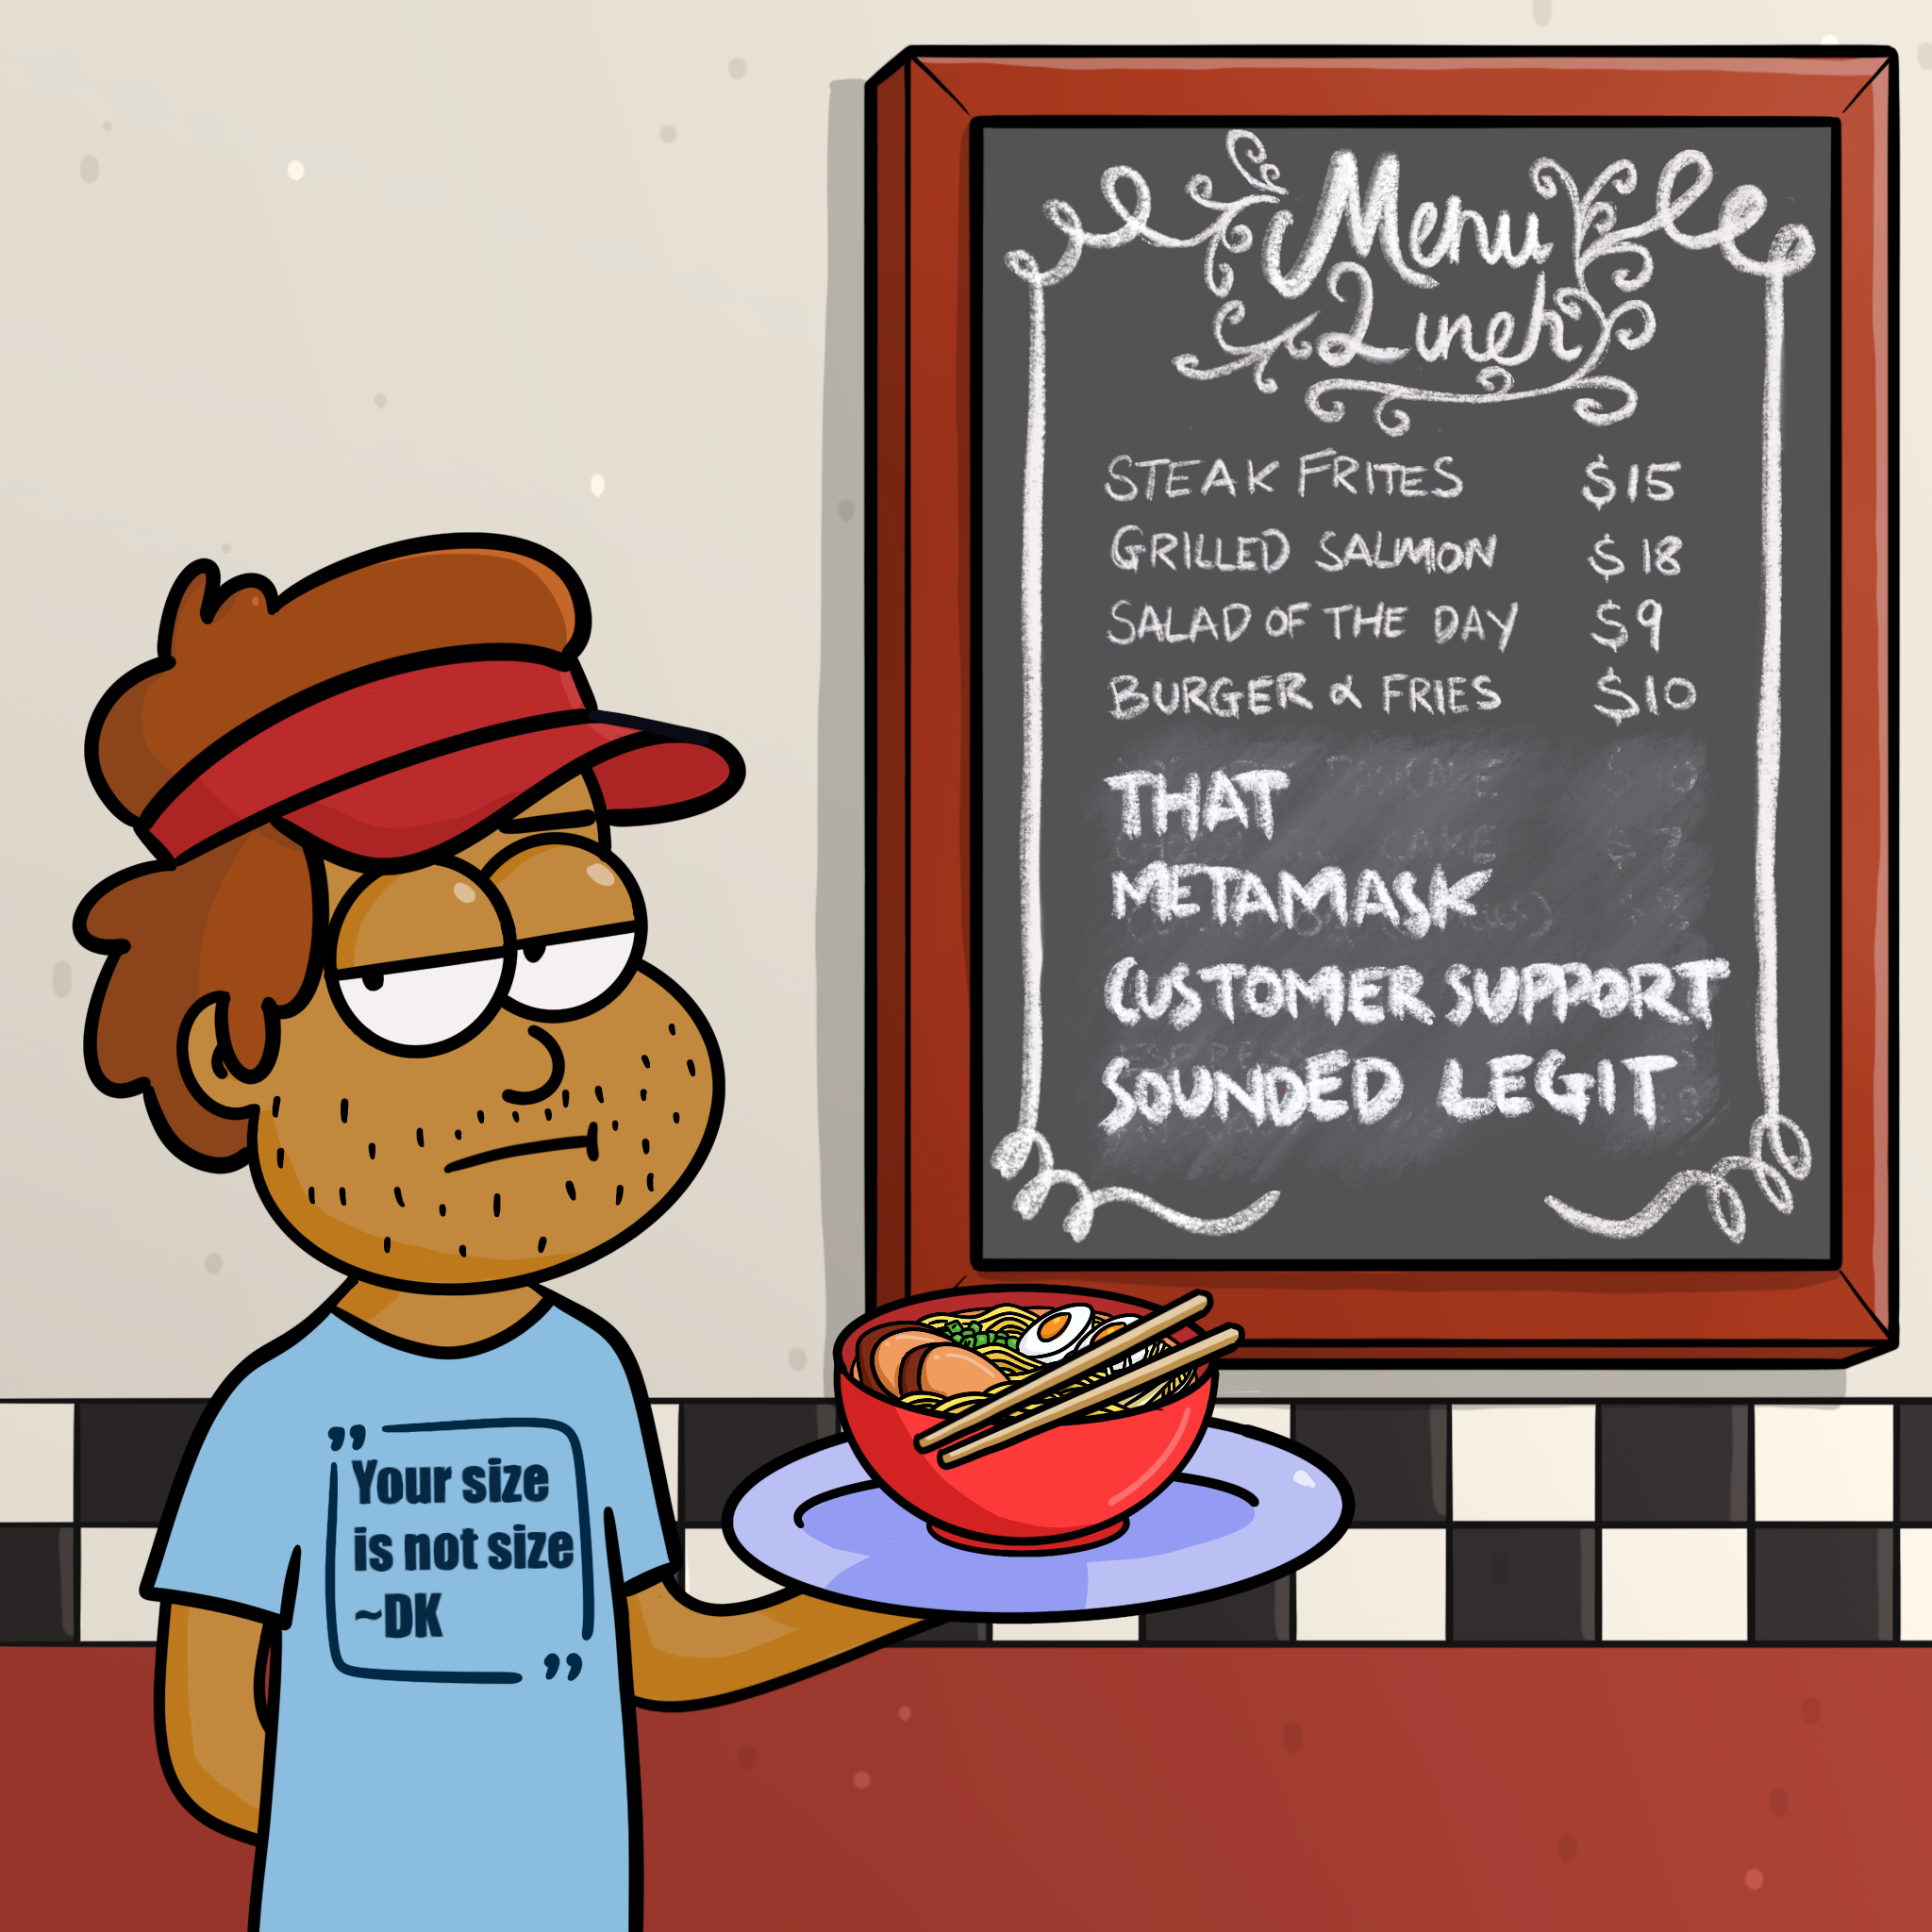 Menu
Lunch
STEAK FRITES $15
GRILLED SALMON $18
SALAD OF THE DAY $9
BURGER & FRIES $10
THAT
METAMASK
CUSTOMER SUPPORT
SOUNDED LEGIT
”
Your size
is not size
~DK
”